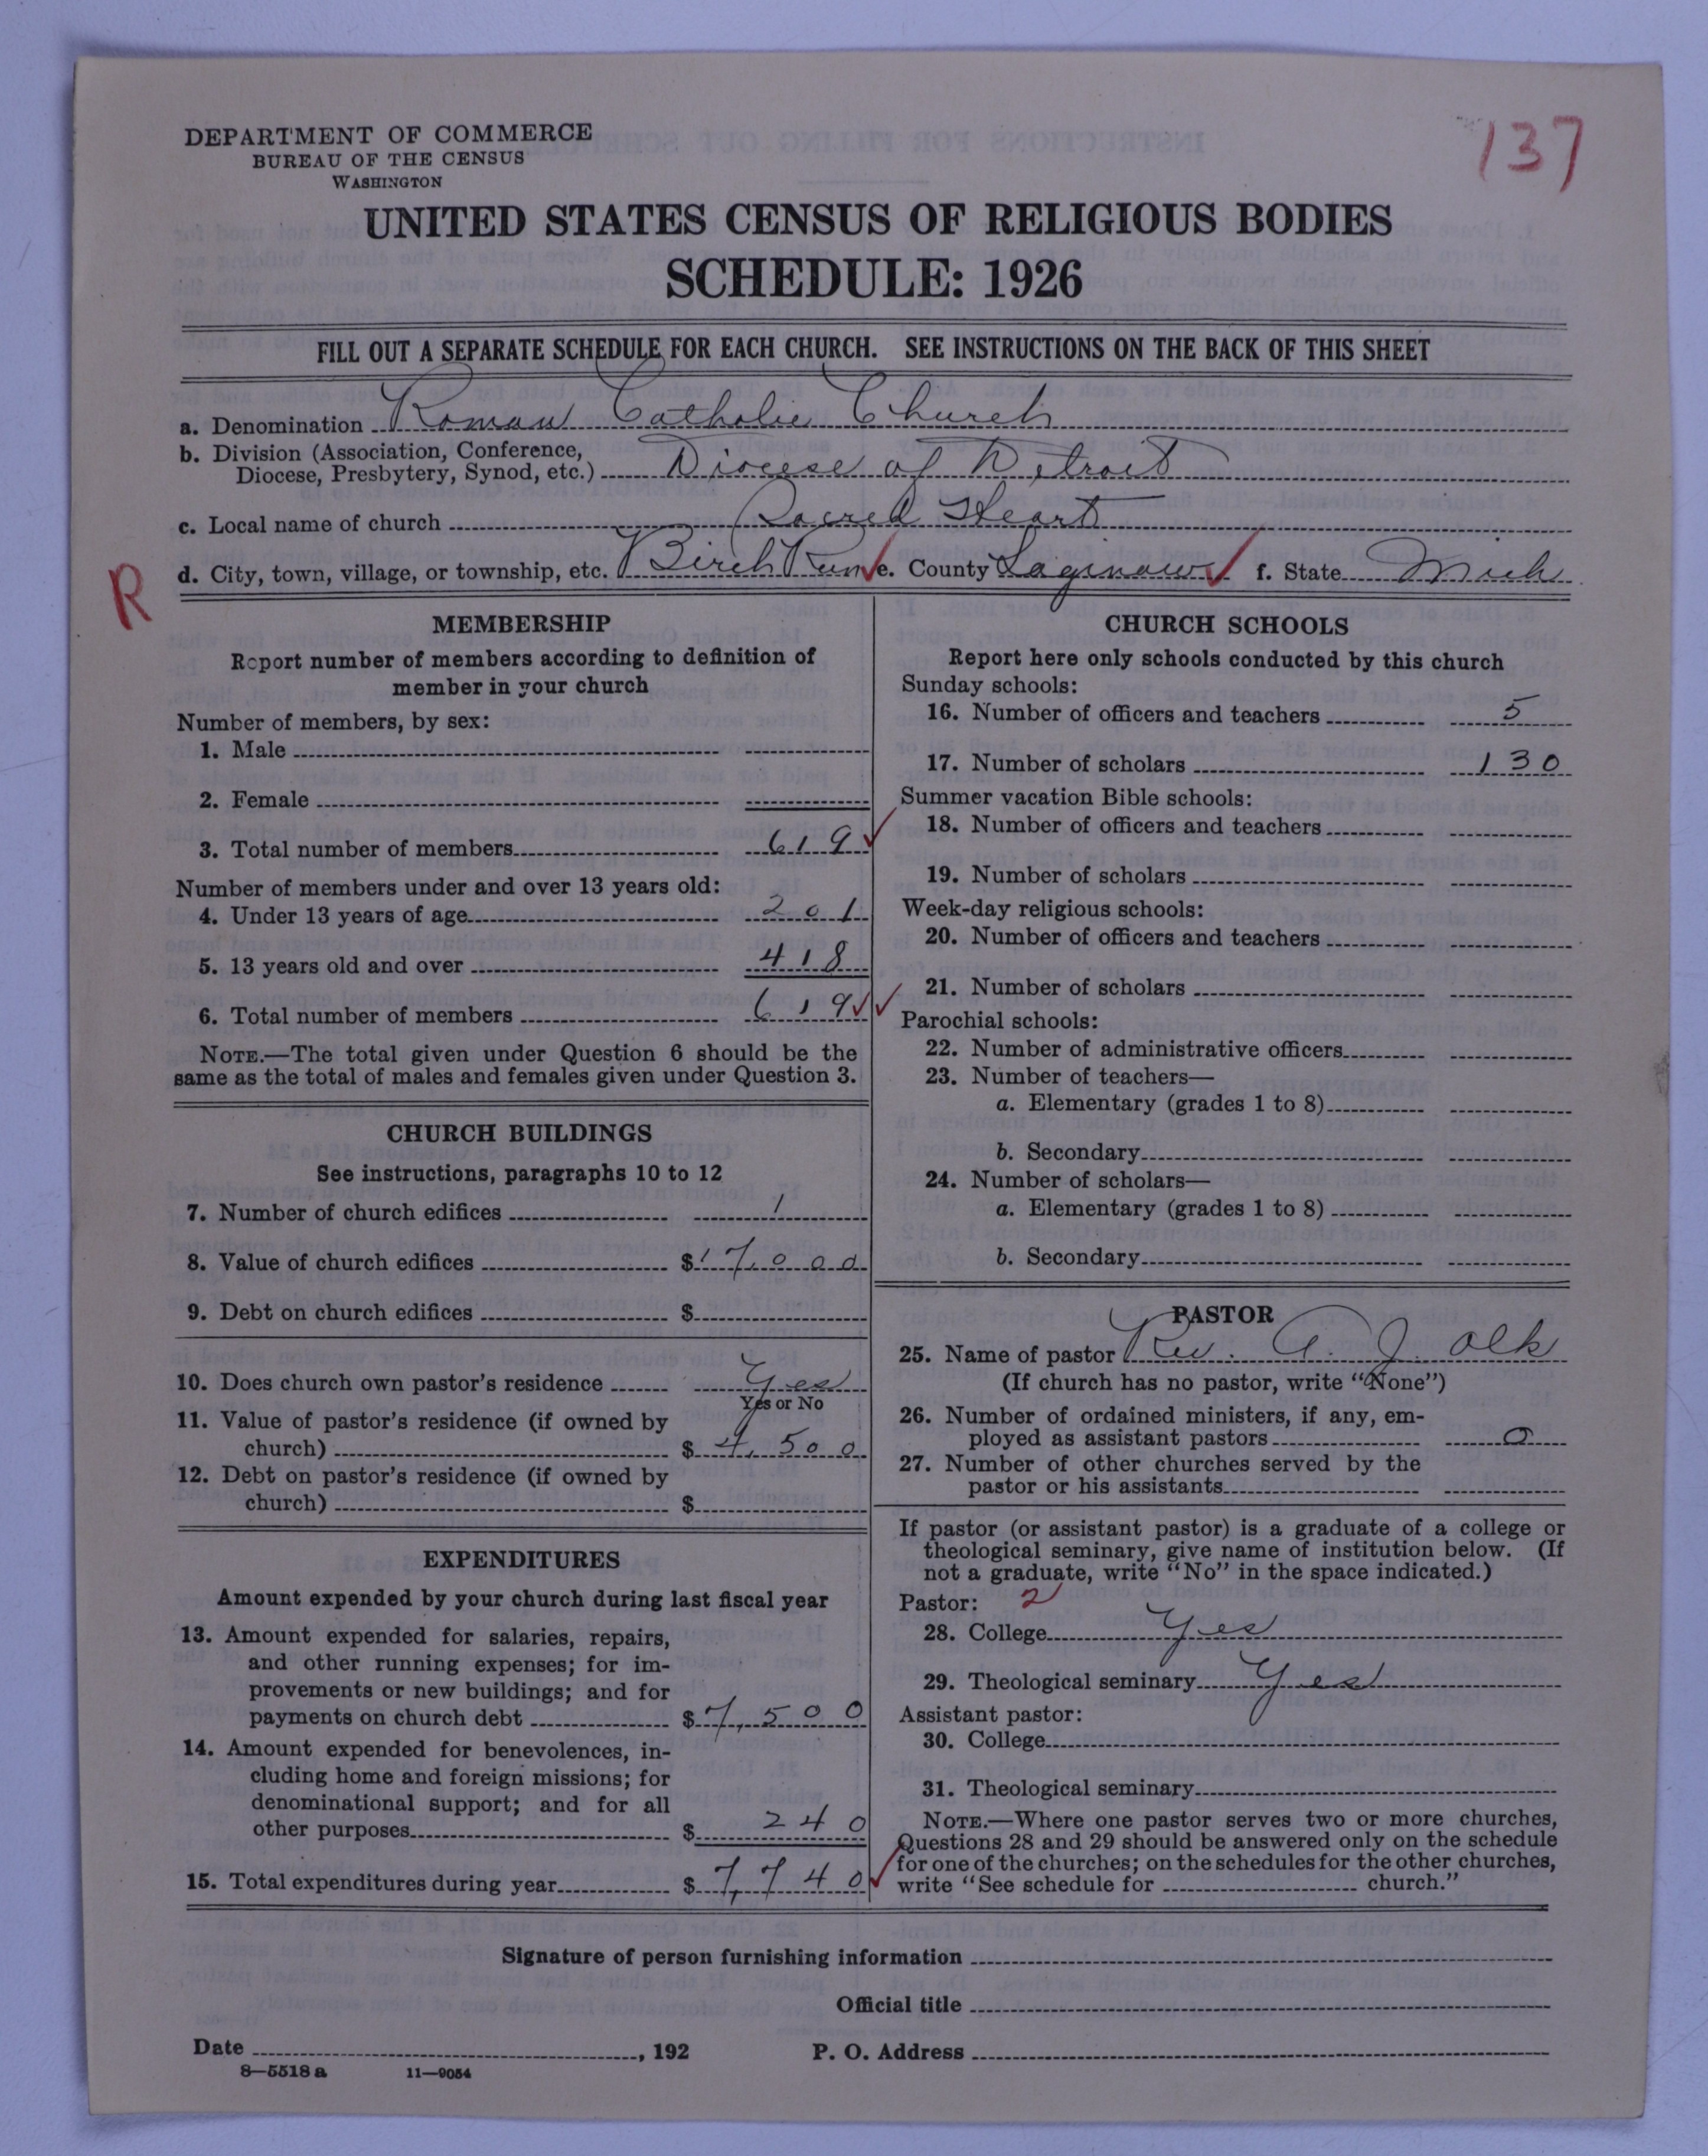 137
DEPARTMENT OF COMMERCE
BUREAU OF THE CENSUS
WASHINGTON
UNITED STATES CENSUS OF RELIGIOUS BODIES
SCHEDULE: 1926
FILL OUT A SEPARATE SCHEDULE FOR EACH CHURCH. SEE INSTRUCTIONS ON THE BACK OF THIS SHEET
a. Denomination Roman Catholic Church
b. Division (Association, Conference,
Diocese, Presbytery, Synod, etc.) Diocese of Detroit
c. Local name of church Sacred Heart
R
d. City, town, village, or township, etc. Birch Run e. County Saginaw f. State Mich
MEMBERSHIP
Report number of members according to definition of
member in your church
Number of members, by sex:
1. Male
2. Female
3. Total number of members 619
Number of members under and over 13 years old:
4. Under 13 years of age 201
5. 13 years old and over 418
6. Total number of members 619
NOTE.—The total given under Question 6 should be the
same as the total of males and females given under Question 3.
CHURCH BUILDINGS
See instructions, paragraphs 10 to 12
7. Number of church edifices 1
8. Value of church edifices $17,000
9. Debt on church edifices $
10. Does church own pastor's residence Yes
Yes or No
11. Value of pastor's residence (if owned by
church) $4,500
12. Debt on pastor's residence (if owned by
church) $
EXPENDITURES
Amount expended by your church during last fiscal year
13. Amount expended for salaries, repairs,
and other running expenses; for im-
provements or new buildings; and for
payments on church debt $7,500
14. Amount expended for benevolences, in-
cluding home and foreign missions; for
denominational support; and for all
other purposes $240
15. Total expenditures during year $7,740
CHURCH SCHOOLS
Report here only schools conducted by this church
Sunday schools:
16. Number of officers and teachers 5
17. Number of scholars 130
Summer vacation Bible schools:
18. Number of officers and teachers
19. Number of scholars
Week-day religious schools:
20. Number of officers and teachers
21. Number of scholars
Parochial schools:
22. Number of administrative officers
23. Number of teachers—
a. Elementary (grades 1 to 8)
b. Secondary
24. Number of scholars—
a. Elementary (grades 1 to 8)
b. Secondary
PASTOR
25. Name of pastor Rev. A. J. Olk
(If church has no pastor, write "None")
26. Number of ordained ministers, if any, em-
ployed as assistant pastors 0
27. Number of other churches served by the
pastor or his assistants
If pastor (or assistant pastor) is a graduate of a college or
theological seminary, give name of institution below. (If
not a graduate, write "No" in the space indicated.)
Pastor: 2
28. College Yes
29. Theological seminary Yes
Assistant pastor:
30. College
31. Theological seminary
NOTE.—Where one pastor serves two or more churches,
Questions 28 and 29 should be answered only on the schedule
for one of the churches; on the schedules for the other churches,
write "See schedule for church."
Signature of person furnishing information
Official title
Date , 192 P. O. Address
8—5518 a 11—9054